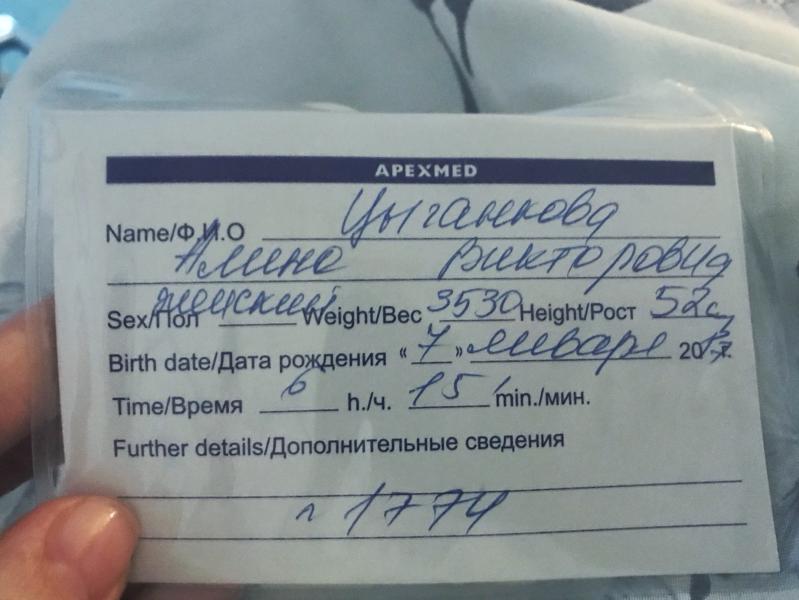 APEXMED
Name/Ф.И.О Цыганкова
Алина Викторовна
Sex/Пол женский Weight/Вес 3530 Height/Рост 52 см
Birth date/Дата рождения «7» января 2017г.
Time/Время 6 h./ч. 15 min./мин.
Further details/Дополнительные сведения
1774